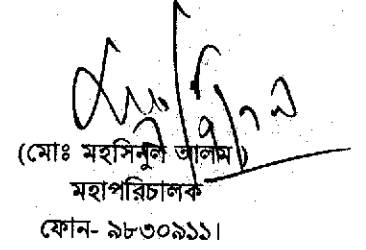 (মোঃ মহসিনুল আলম)
মহাপরিচালক
ফোন- ৯৮৩০৯১১।